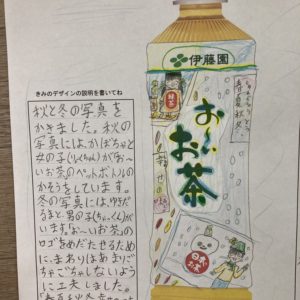 きみのデザインの説明を書いてね
秋と冬の写真を
かきました。秋の
写真には、かぼちゃと
女の子(りくちゃん)が「お〜
いお茶」のペットボトルの
かそうをしています。
冬の写真には、ゆきだ
るまと男の子(ちゃっくん)が
います。「お〜いお茶」の
ロゴをめだたせるため
に、まわりはあまりご
ちゃごちゃしないよう
に工夫しました。
伊藤園
春夏秋冬
緑茶
お〜い
お茶
日本の
お茶